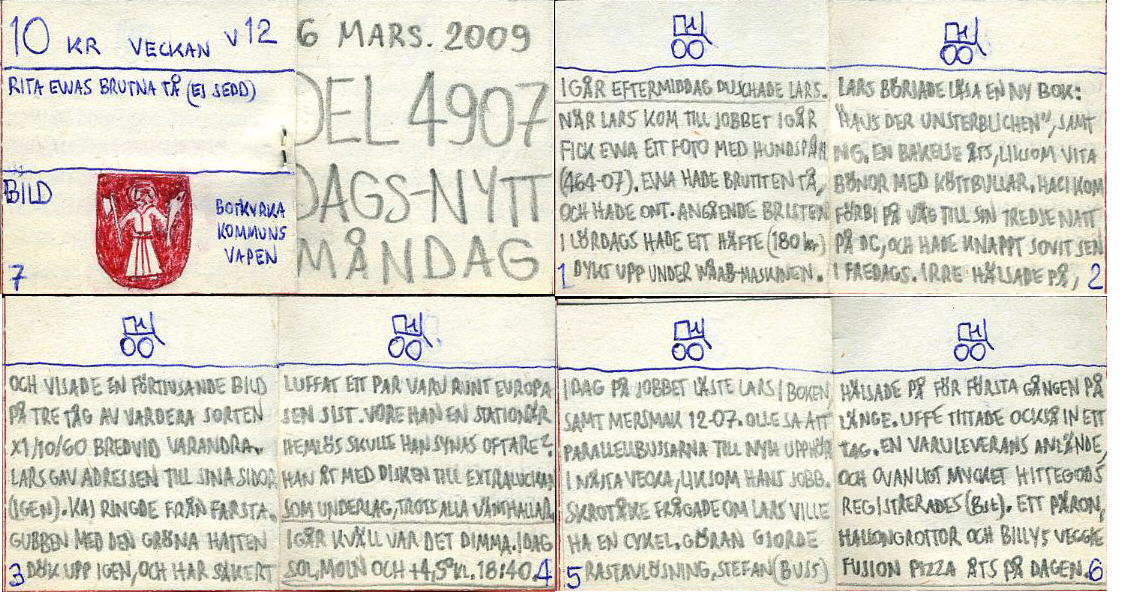 10 KR VECKAN V12
RITA EWAS BRUTNA TÅ (EJ SEDD)
BILD
BOTKYRKA
KOMMUNS
VAPEN
7
6 MARS. 2009
DEL 4907
DAGS-NYTT
MÅNDAG
I GÅR EFTERMIDDAG DUSCHADE LARS.
NÄR LARS KOM TILL JOBBET IGÅR
FICK EWA ETT FOTO MED HUNDSPÅR
(464-07). EWA HADE BRUTIT EN TÅ,
OCH HADE ONT. ANGÅENDE BRISTEN
I LÖRDAGS HADE ETT HÄFTE (180 kr)
1 DYKT UPP UNDER WÅAB-MASKINEN.
LARS BÖRJADE LÄSA EN NY BOK:
"HAUS DER UNSTERBLICHEN", SAMT
NG. EN BAKELSE ÄTS, LIKSOM VITA
BÖNOR MED KÖTTBULLAR. HACI KOM
FÖRBI PÅ VÄG TILL SIN TREDJE NATT
PÅ DC, OCH HADE KNAPPT SOVIT SEN
I FREDAGS. IRRE HÄLSADE PÅ, 2
OCH VISADE EN FÖRTJUSANDE BILD
PÅ TRE TÅG AV VARDERA SORTEN
X1/10/60 BREDVID VARANDRA.
LARS GAV ADRESSEN TILL SINA SIDOR
(IGEN). KAJ RINGDE FRÅN FARSTA.
GUBBEN MED DEN GRÖNA HATTEN
3 DÖK UPP IGEN, OCH HAR SÄKERT
LUFFAT ETT PAR VARV RUNT EUROPA
SEN SIST. VORE HAN EN STATIONÄR
HEMLÖS SKULLE HAN SYNAS OFTARE?
HAN ÅT MED DISKEN TILL EXTRALUCKAN
SOM UNDERLAG, TROTS ALLA VÄNTHALLAR.
I GÅR KVÄLL VAR DET DIMMA. I DAG
SOL, MOLN OCH +4,5° kl. 18:40. 4
I DAG PÅ JOBBET LÄSTE LARS I BOKEN
SAMT MERSMAK 12-07. OLLE SA ATT
PARALLELLBUSSARNA TILL NYH UPPHÖR
I NÄSTA VECKA, LIKSOM HANS JOBB.
SKROTÅKE FRÅGADE OM LARS VILLE
HA EN CYKEL. GÖRAN GJORDE
5 RASTAVLÖSNING, STEFAN (BUSS)
HÄLSADE PÅ FÖR FÖRSTA GÅNGEN PÅ
LÄNGE. UFFE TITTADE OCKSÅ IN ETT
TAG. EN VARULEVERANS ANLÄNDE,
OCH OVANLIGT MYCKET HITTEGODS
REGISTRERADES (8st). ETT PÄRON,
HALLONGROTTOR OCH BILLYS VEGGIE
FUSION PIZZA ÄTS PÅ DAGEN. 6